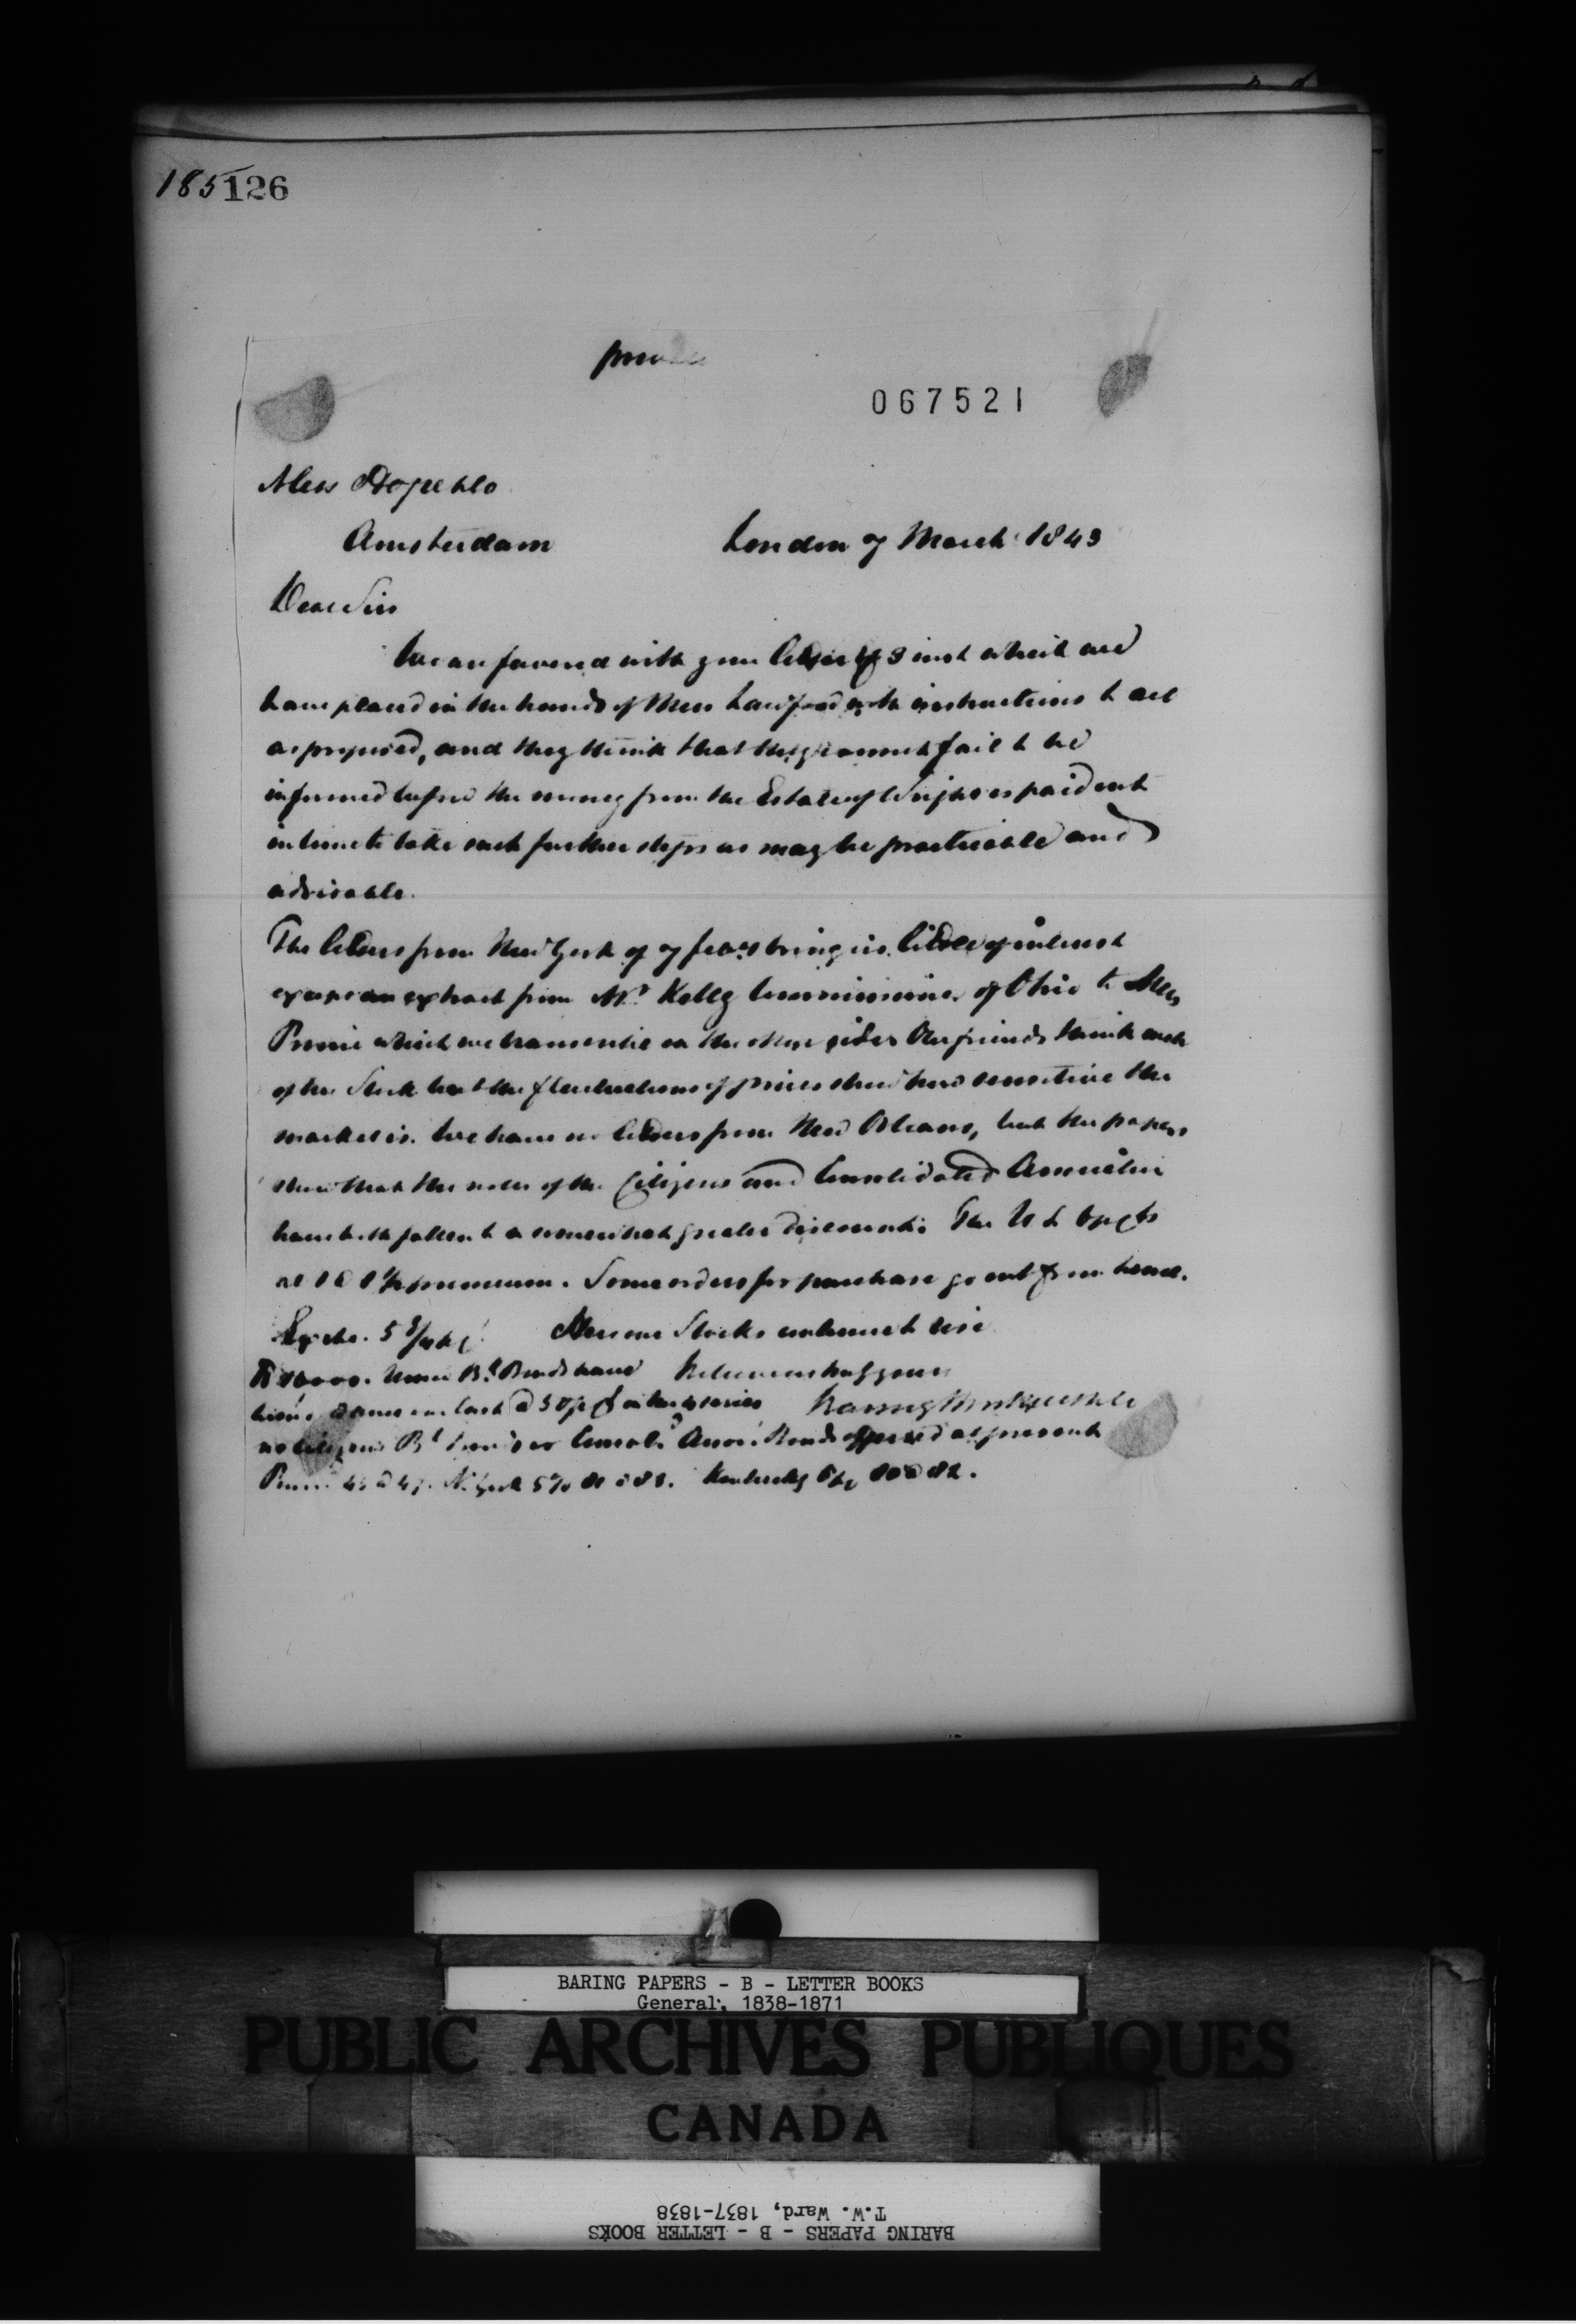 185 126
private
067521
Mess Hope & Co
Amsterdam London 7 March 1843
Dear Sirs
We are favored with your letter of 3 inst which we
have placed in the hands of Mess Lawford with instructions to act
as proposed, and they think that they cannot fail to be
informed before the money from the Estate of Wright is paid out
in time to take such further steps as may be practicable and
advisable.
The letters from New York of 7 feb bring us little of interest
except an extract from Mr Kelly Commissioner of Ohio to Mess
Prime which we transcribe on the other side. Our friends think well
of the Stock but the fluctuations of prices shew how sensitive the
market is. We have no letters from New Orleans, but the papers
shew that the notes of the Citizens and Consolidated Association
have both fallen to a somewhat greater discount. The U S 6 pcts
at 1 @ 1½ premium. Some orders for purchase go out from hence.
Exche. 5 Stocks continue to rise
Union Bk Bonds have
@ 50 pct
no Citizens Bk bonds or Consold Assn Bonds offered at present
N. York 5% 81 @ 83. Kentucky 6 pct 80 @ 82.
BARING PAPERS - B - LETTER BOOKS
General, 1838-1871
PUBLIC ARCHIVES PUBLIQUES
CANADA
BARING PAPERS - B - LETTER BOOKS
T.W. Ward, 1837-1838